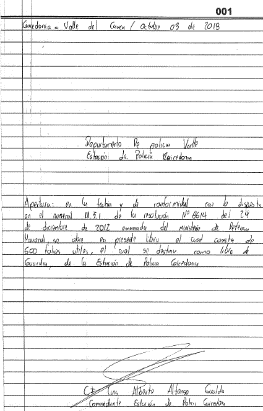 001
Caicedonia - Valle del Cauca / Octubre 03 de 2018
Departamento De policia Valle
Estacion de Policia Caicedonia
Apertura: en la fecha y de conformidad con lo dispuesto
en el numeral de la resolucion Nº del 29
de diciembre de 2017 emanada del Ministerio de Defensa
Nacional, se abre el presente libro el cual consta de
500 folios utiles, el cual se destina como libro de
de la Estacion de Policia Caicedonia
Luis Alberto
Comandante Estacion de Policia Caicedonia